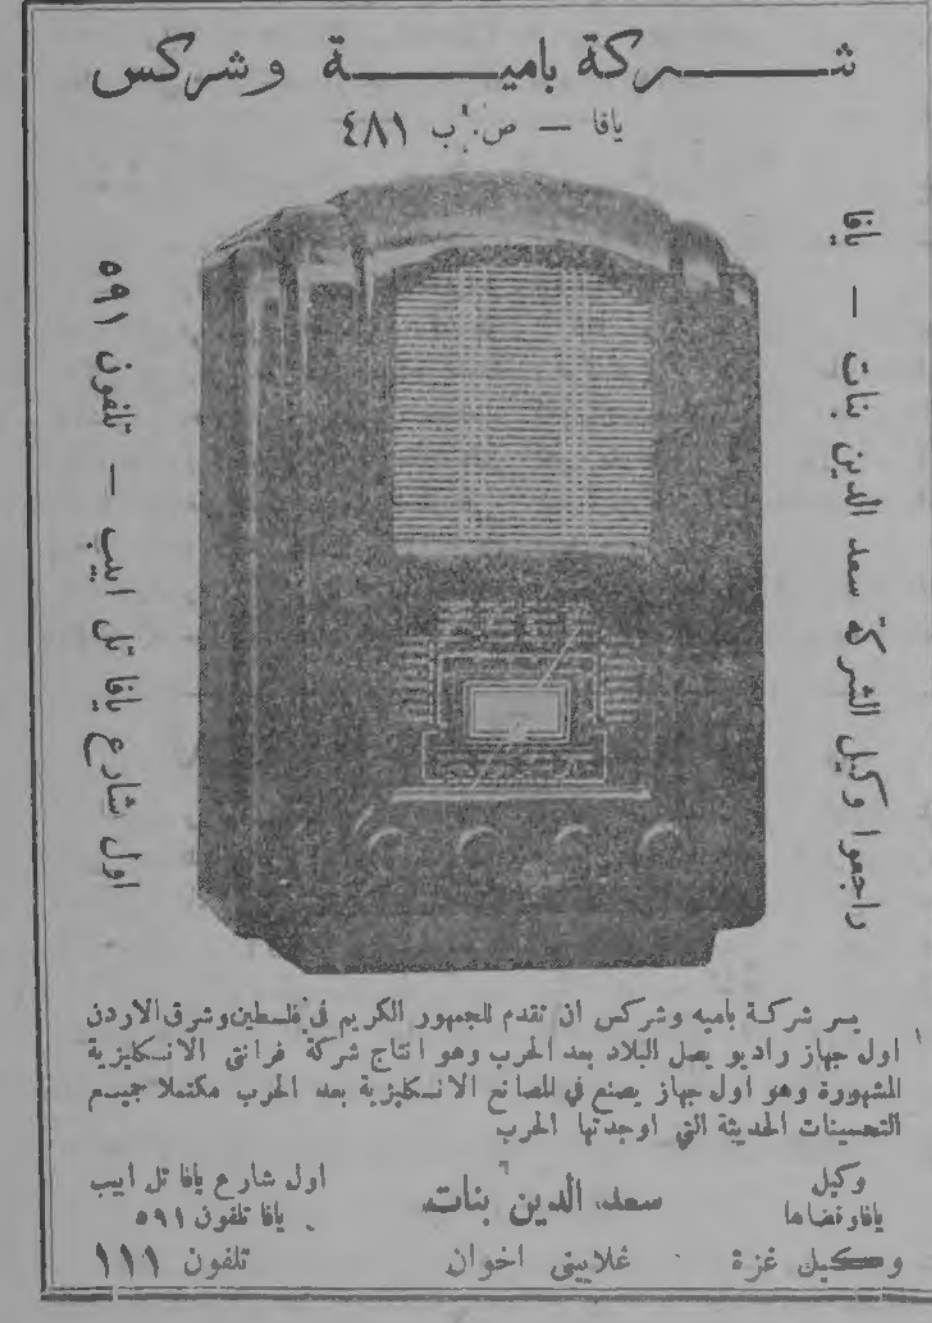 شركة بامية وشركس
يافا — ص.ب ٤٨١
راجعوا وكيل الشركة سعد الدين بنات — يافا
اول شارع يافا تل ابيب — تلفون ٥٩١
يسر شركة باميه وشركس ان تقدم للجمهور الكريم في فلسطين وشرق الاردن
اول جهاز راديو يصل البلاد بعد الحرب وهو انتاج شركة فرانتي الانكليزية
المشهورة وهو اول جهاز يصنع في المصانع الانكليزية بعد الحرب مكتملا جميع
التحسينات الحديثة التي اوجدتها الحرب
وكيل يافا وقضاها
سعد الدين بنات
اول شارع يافا تل ابيب
يافا تلفون ٥٩١
وكيل غزة غلاييني اخوان تلفون ١١١